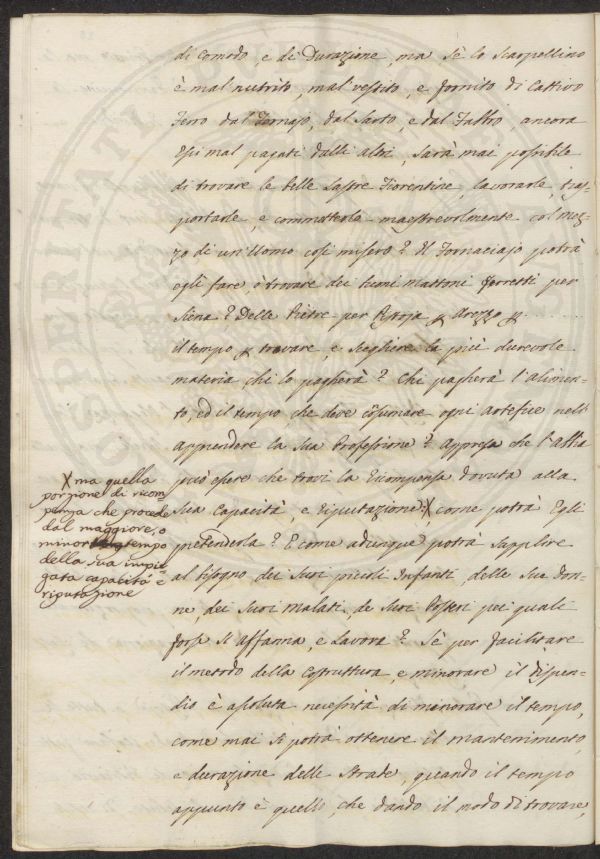 di comodo, e di Durazione, ma Sè lo Scarpellino
è mal nutrito, mal vestito, e fornito di Cattivo
Ferro dal Fornajo, dal Sarto, e dal Fabbro, ancora
Essi mal pagati dalli altri, Sarà mai possibile
di trovare le belle Lastre Fiorentine, lavorarle, tras-
portarle, e commetterle maestrevolmente col mez-
zo di un'Uomo così misero? Il Fornaciajo potrà
egli fare, o trovare dei buoni mattoni ferretti per
Siena? Delle Pietre per Pistoja, e Arezzo
il tempo trovare, e Scegliere la più durevole
materia chi lo pagherà? Chi pagherà l'alimen-
to, ed il tempo, che deve cõsumare ogni artefice nell'
apprendere la Sua Professione? Appresa che l'abbia
può essere che trovi la ricompensa dovuta alla
Sua Capacità, e riputazione: X, come potrà Egli
pretenderla? E come adunque potrà Supplire
al bisogno dei Suoi piccoli Infanti, delle Sue Don-
ne, dei Suoi malati, de Suoi Posteri pei quali
forse Si affanna, e Lavora? Sè per facilitare
il metodo della Costruttura, e minorare il dispen-
dio è assoluta necessità di minorare il tempo,
come mai Si potrà ottenere il mantenimento,
e durazione delle Strade, quando il tempo
appunto è quello, che dando il modo di trovare,
X ma quella
porzione di ricom-
penza che procede
dal maggiore, o
minor tempo
della Sua impie-
gata capacità e
riputazione
PROSPERITATI PUBLICAE